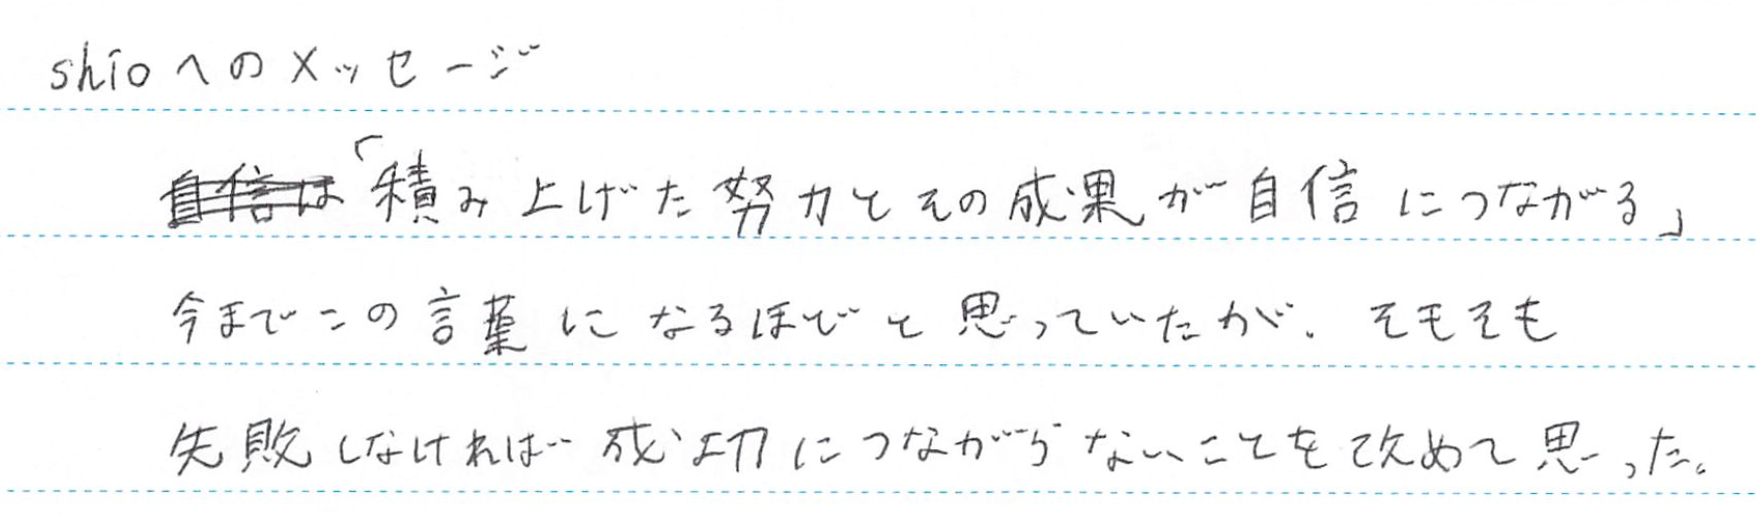 shioへのメッセージ
自信は「積み上げた努力とその成果が自信につながる」
今までこの言葉になるほどと思っていたが、そもそも
失敗しなければ成功につながらないことを改めて思った。